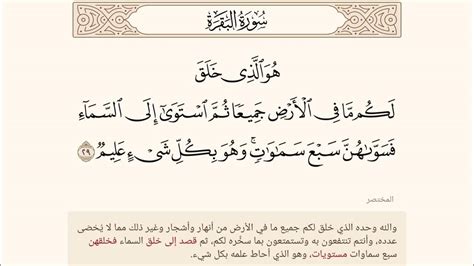 سُورَةُ البَقَرَةِ
هُوَ ٱلَّذِي خَلَقَ
لَكُم مَّا فِي ٱلْأَرْضِ جَمِيعًا ثُمَّ ٱسْتَوَىٰٓ إِلَى ٱلسَّمَآءِ
فَسَوَّىٰهُنَّ سَبْعَ سَمَٰوَٰتٖۚ وَهُوَ بِكُلِّ شَيْءٍ عَلِيمٞ ٢٩
المختصر
والله وحده الذي خلق لكم جميع ما في الأرض من أنهار وأشجار وغير ذلك مما لا يُحْصَى
عدده، وأنتم تنتفعون به وتستمتعون بما سخَّره لكم، ثم قصد إلى خلق السماء فخلقهن
سبع سماوات مستويات، وهو الذي أحاط علمه بكل شيء.